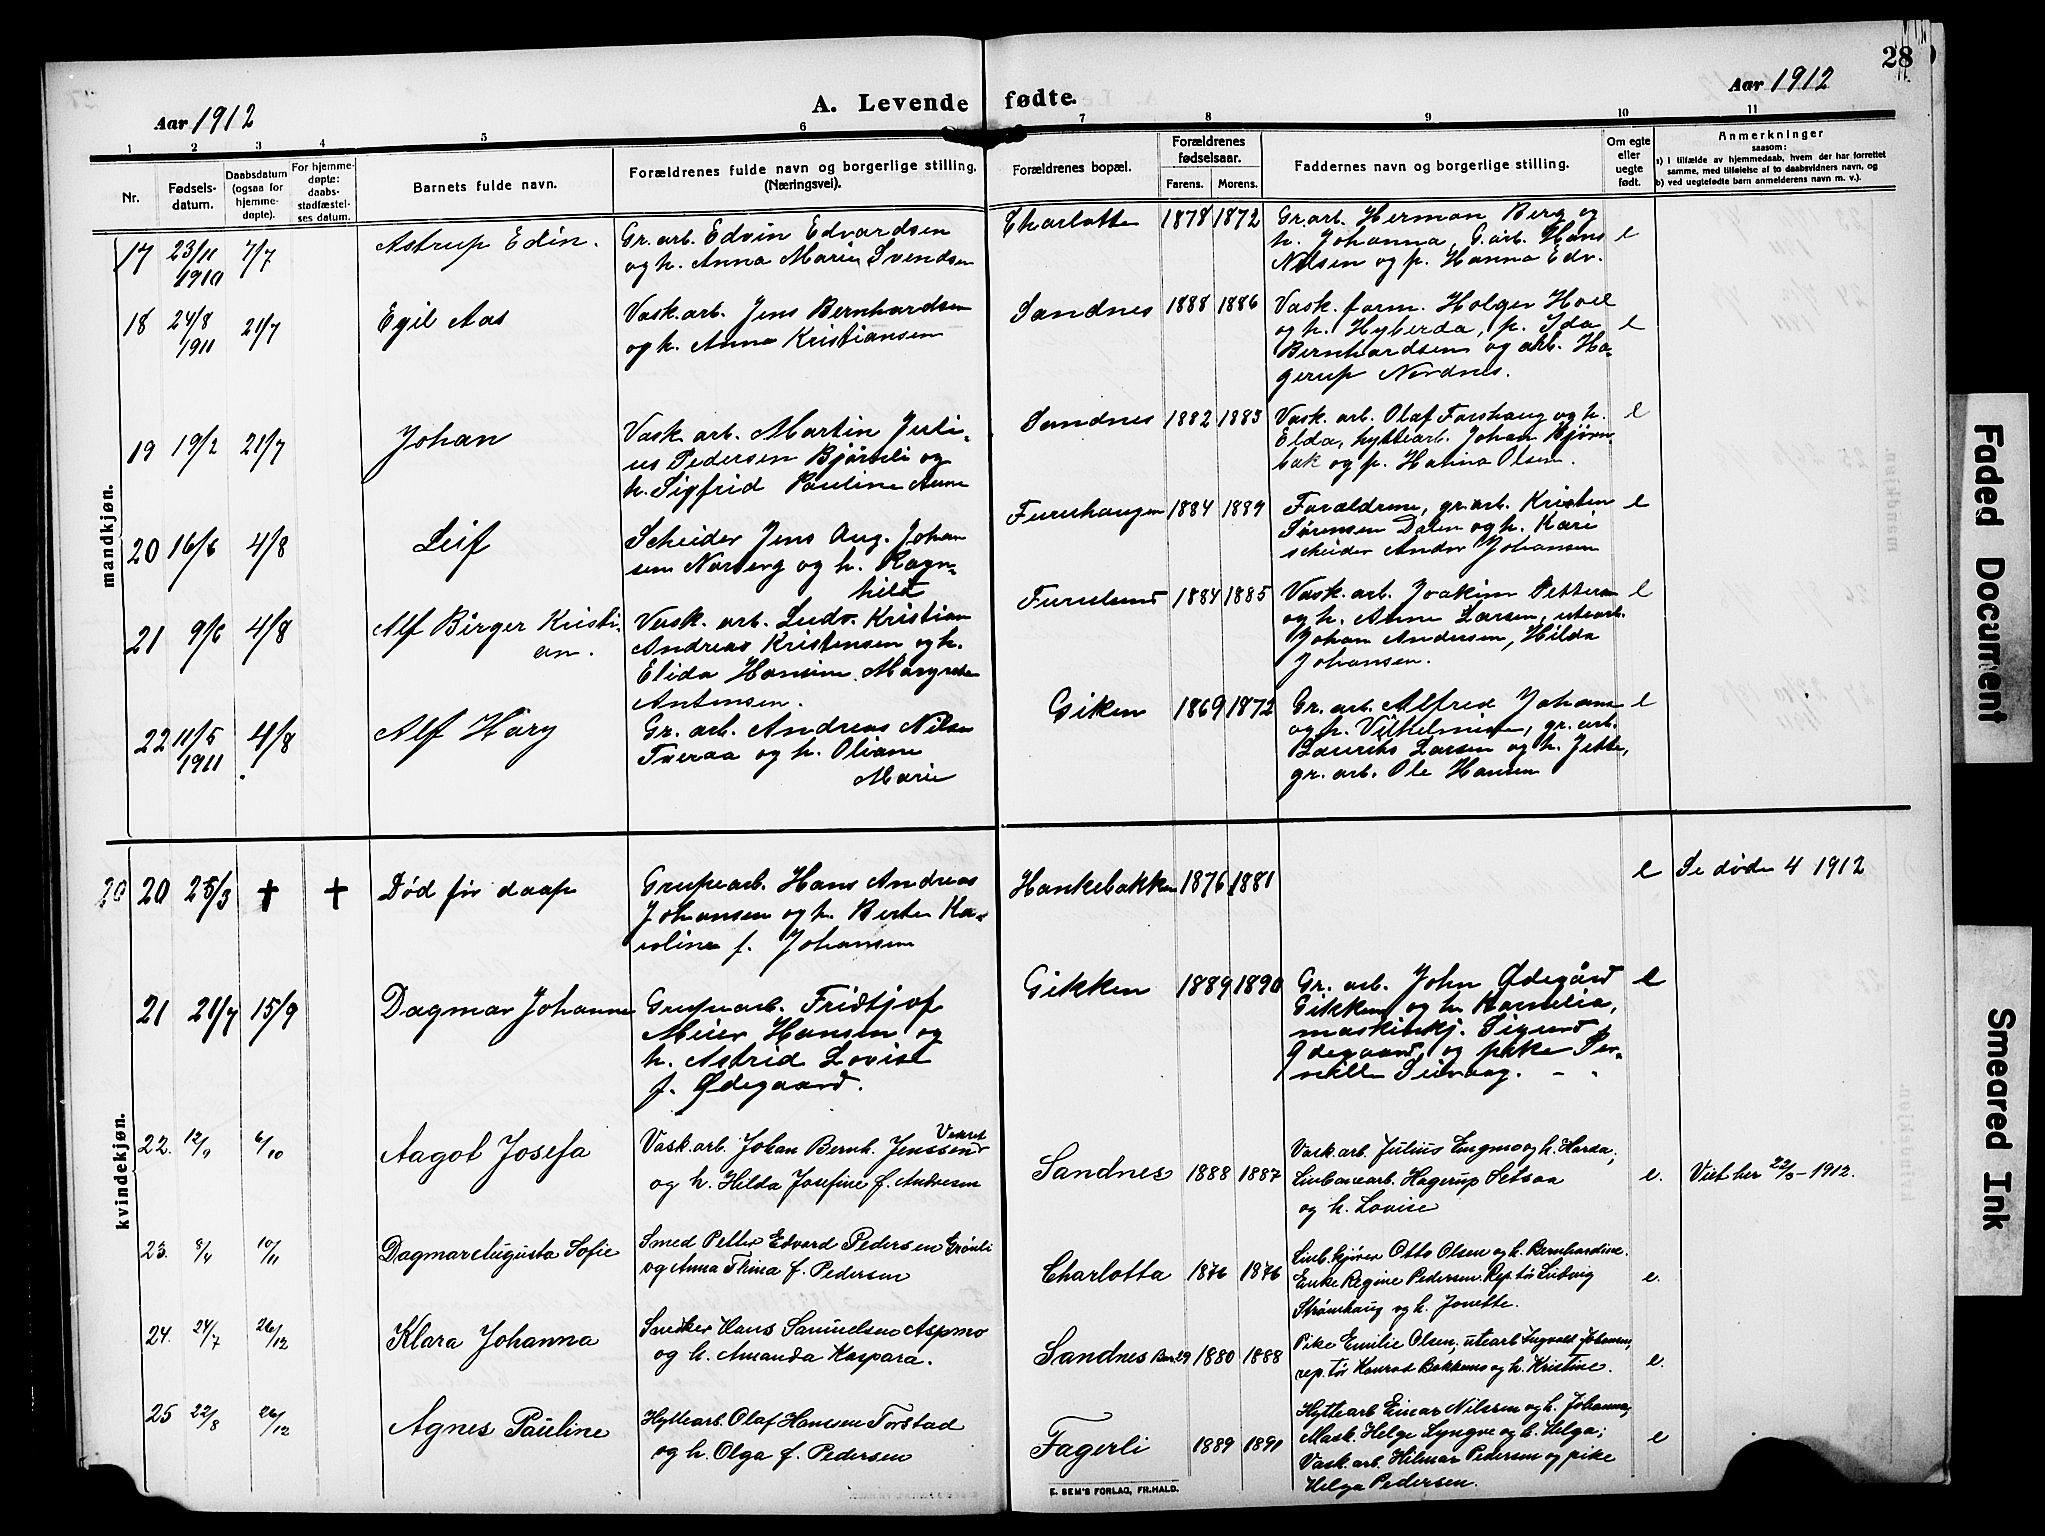 28
Aar 1912
A. Levende fødte.
Aar 1912
1 2 3 4 5 6 7 8 9 10 11
Nr.
Fødsels-
datum.
Daabsdatum
(ogsaa for
hjemme-
døpte).
For hjemme-
døpte:
daabs-
stadfæstel-
ses datum.
Barnets fulde navn.
Forældrenes fulde navn og borgerlige stilling.
(Næringsvei).
Forældrenes bopæl.
Forældrenes
fødselsaar.
Farens. Morens.
Faddernes navn og borgerlige stilling.
Om egte
eller
uegte
født.
Anmerkninger
saasom:
a) I tilfælde av hjemmedaab, hvem der har forrettet
samme, med tilføielse af to daabsvidners navn, og
b) ved uegtefødte børn anmelderens navn m. v.).
mandkjøn.
17 23/11 1910 7/7
Astrup Edin.
Gr. arb. Edvin Edvardsen
og h. Anna Marie Svendsen
Charlotta 1878 1872
Gr. arb. Herman Berg og
h. Johanna, G. arb. Hans
Nilsen og p. Hanna Edv.
e
18 24/8 1911 21/7
Egil Aas
Vask. arb. Jens Bernhardsen
og h. Anna Kristiansen
Sandnes 1888 1886
Vask. form. Holger Hoel
og h. Hyberda, p. Ida
Bernhardsen og arb. Ha-
gerup Nordnes.
e
19 19/2 21/7
Johan
Vask. arb. Martin Juli-
us Pedersen Bjørnli og
h. Sigfrid Pauline Aune
Sandnes 1882 1883
Vask. arb. Olaf Forshaug og h.
Elda, hyttearb. Johan Bjørn
bak og p. Hanna Olsen.
e
20 16/6 4/8
Leif
Scheider Jens Aug. Johan
sen Norberg og h. Ragn-
hild
Furuhaugen 1884 1889
Forældrene, gr. arb. Kristen
Sørensen Dalen og h. Kari
scheider Andr Johansen
e
21 9/6 4/8
Alf Birger Kristi-
an.
Vask. arb. Ludv. Kristian
Andreas Kristensen og h.
Elida Hansine Margrethe
Antonsen.
Furulund 1884 1885
Vask. arb. Joakim Petters
og h. Anne Larsen, utearb.
Johan Andersen, Hilda
Johansen.
e
22 11/5 1911 4/8
Alf Hary
Gr. arb. Andreas Nilsen
Tveraa og h. Oliane
Marie
Giken 1869 1872
Gr. arb. Alfred Johans
og h. Vilhelmine, gr. arb.
Laurits Larsen og h. Jette,
gr. arb. Ole Hansen
e
kvindekjøn.
20 20 25/3 † †
Død før daap
Grupearb. Hans Andreas
Johansen og h. Berte Ka-
roline f. Johansen
Hankebakken 1876 1881
e Se døde 4 1912
21 21/7 15/9
Dagmar Johanne
Grupearb. Fridtjof
Meier Hansen og
h. Astrid Lovise
f. Ødegaard.
Gikken 1889 1890
Gr. arb. John Ødegård
Gikken og h. Kornelia,
maskinkj. Sigurd
Ødegaard og pike Per-
nille Seivaag.
e
22. 12/9 6/10
Aagot Josefa
Vask. arb. Johan Bernh. Jenssen
og h. Hilda Josefine f. Andresen
Sandnes 1888 1887
Vask. arb. Julius Engmo og h. Harda,
Linbanearb. Hagerup Setsaa
og h. Lovise
e. Viet her 22/5 - 1912.
23. 8/4 10/11
Dagmar Augusta Sofie
Smed Petter Edvard Pedersen Grønli
og Anna Trina f. Pedersen
Charlotta 1876 1876
Linb. kjører Otto Olsen og h. Bernhardine.
Enke Regine Pedersen. Rep. tør Ludvig
Strømhaug og h. Jonette.
e.
24. 24/7 26/12
Klara Johanna
Snedker Hans Samuelsen Aspmo
og h. Amanda Kaspara.
Sandnes 1880 1888
Pike Emilie Olsen, utearb Ingvald Johansen,
rep. tør Konrad Bakkemo og h. Kristine.
e.
25 22/8 26/12
Agnes Pauline
Hyttearb. Olaf Hansen Torstad
og h. Olga f. Pedersen
Fagerli 1889 1891
Hyttearb Einar Nilssen og h. Johanna,
Mask. Helge Lyngve og h. Helga;
Vask. arb. Hilmar Pedersen og pike
Helga Pedersen.
e
E. SEM'S FORLAG, FR.HALD.
Faded Document
Smeared Ink